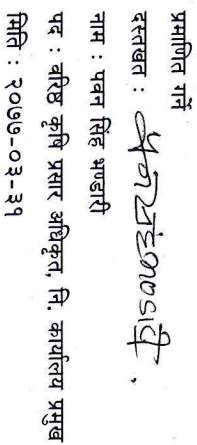 प्रमाणित गर्ने
दस्तखत :
नाम : पवन सिंह भण्डारी
पद : बरिष्ठ कृषि प्रसार अधिकृत, नि. कार्यालय प्रमुख
मिति : २०७७-०३-३१